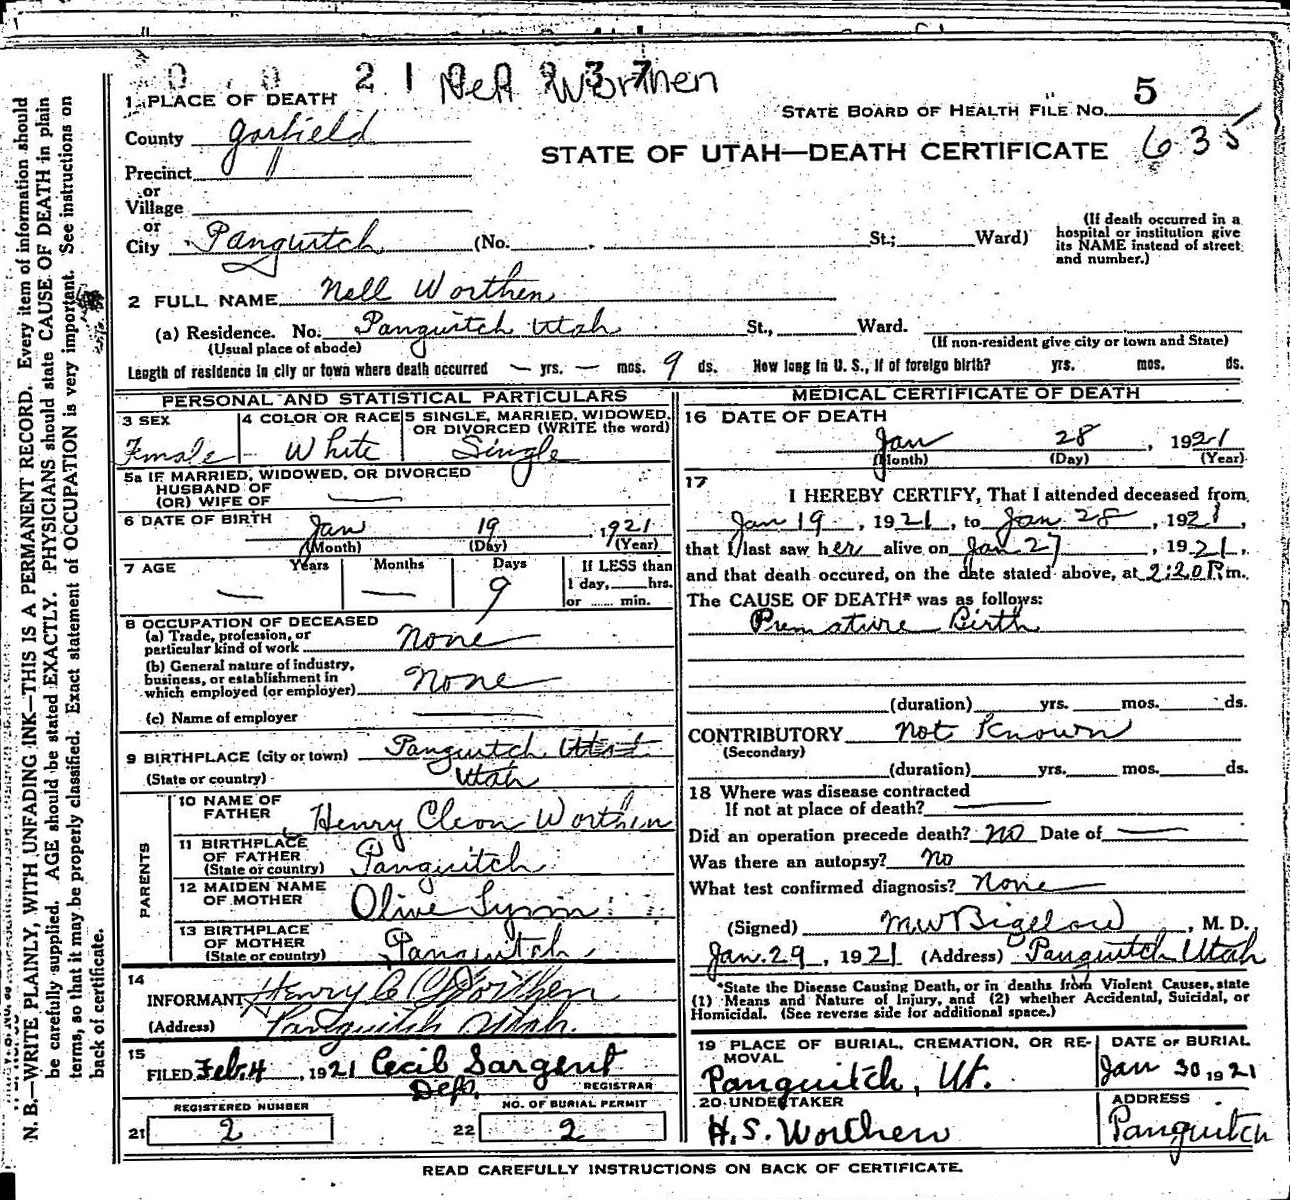 21 Nell Worthen
1 PLACE OF DEATH
STATE BOARD OF HEALTH FILE NO. 5
County Garfield
STATE OF UTAH—DEATH CERTIFICATE 635
Precinct
or
Village
or
City Panguitch (No. St.; Ward)
(If death occurred in a
hospital or institution give
its NAME instead of street
and number.)
2 FULL NAME Nell Worthen
(a) Residence. No. Panguitch Utah St., Ward.
(Usual place of abode) (If non-resident give city or town and State)
Length of residence in city or town where death occurred — yrs. — mos. 9 ds. How long in U. S., if of foreign birth? yrs. mos. ds.
PERSONAL AND STATISTICAL PARTICULARS
3 SEX Female
4 COLOR OR RACE White
5 SINGLE, MARRIED, WIDOWED,
OR DIVORCED (WRITE the word)
Single
5a IF MARRIED, WIDOWED, OR DIVORCED
HUSBAND OF
(OR) WIFE OF —
6 DATE OF BIRTH Jan 19, 1921
(Month) (Day) (Year)
7 AGE Years Months Days If LESS than
1 day, hrs.
or min.
— — 9
8 OCCUPATION OF DECEASED
(a) Trade, profession, or
particular kind of work None
(b) General nature of industry,
business, or establishment in
which employed (or employer) None
(c) Name of employer —
9 BIRTHPLACE (city or town) Panguitch Utah
(State or country) Utah
PARENTS
10 NAME OF
FATHER Henry Cleon Worthen
11 BIRTHPLACE
OF FATHER
(State or country) Panguitch
12 MAIDEN NAME
OF MOTHER Olive
13 BIRTHPLACE
OF MOTHER
(State or country) Panguitch
14
INFORMANT Henry C Worthen
(Address) Panguitch Utah.
15
FILED Feb. 4, 1921 Cecil Sargent
Dep. REGISTRAR
REGISTERED NUMBER
21 2
NO. OF BURIAL PERMIT
22 2
MEDICAL CERTIFICATE OF DEATH
16 DATE OF DEATH
Jan 28, 1921
(Month) (Day) (Year)
17
I HEREBY CERTIFY, That I attended deceased from
Jan 19, 1921, to Jan 28, 1921,
that I last saw her alive on Jan 27, 1921,
and that death occured, on the date stated above, at 2:20 P.m.
The CAUSE OF DEATH* was as follows:
Premature Birth
(duration) yrs. mos. ds.
CONTRIBUTORY Not Known
(Secondary)
(duration) yrs. mos. ds.
18 Where was disease contracted
If not at place of death? —
Did an operation precede death? No Date of —
Was there an autopsy? No
What test confirmed diagnosis? None
(Signed) M W Bigelow, M. D.
Jan. 29, 1921 (Address) Panguitch Utah
*State the Disease Causing Death, or in deaths from Violent Causes, state
(1) Means and Nature of Injury, and (2) whether Accidental, Suicidal, or
Homicidal. (See reverse side for additional space.)
19 PLACE OF BURIAL, CREMATION, OR RE-
MOVAL
Panguitch, Ut.
DATE OF BURIAL
Jan 30, 1921
20 UNDERTAKER
H. S. Worthen
ADDRESS
Panguitch
READ CAREFULLY INSTRUCTIONS ON BACK OF CERTIFICATE.
N. B.—WRITE PLAINLY, WITH UNFADING INK—THIS IS A PERMANENT RECORD. Every item of information should
be carefully supplied. AGE should be stated EXACTLY. PHYSICIANS should state CAUSE OF DEATH in plain
terms, so that it may be properly classified. Exact statement of OCCUPATION is very important. See instructions on
back of certificate.